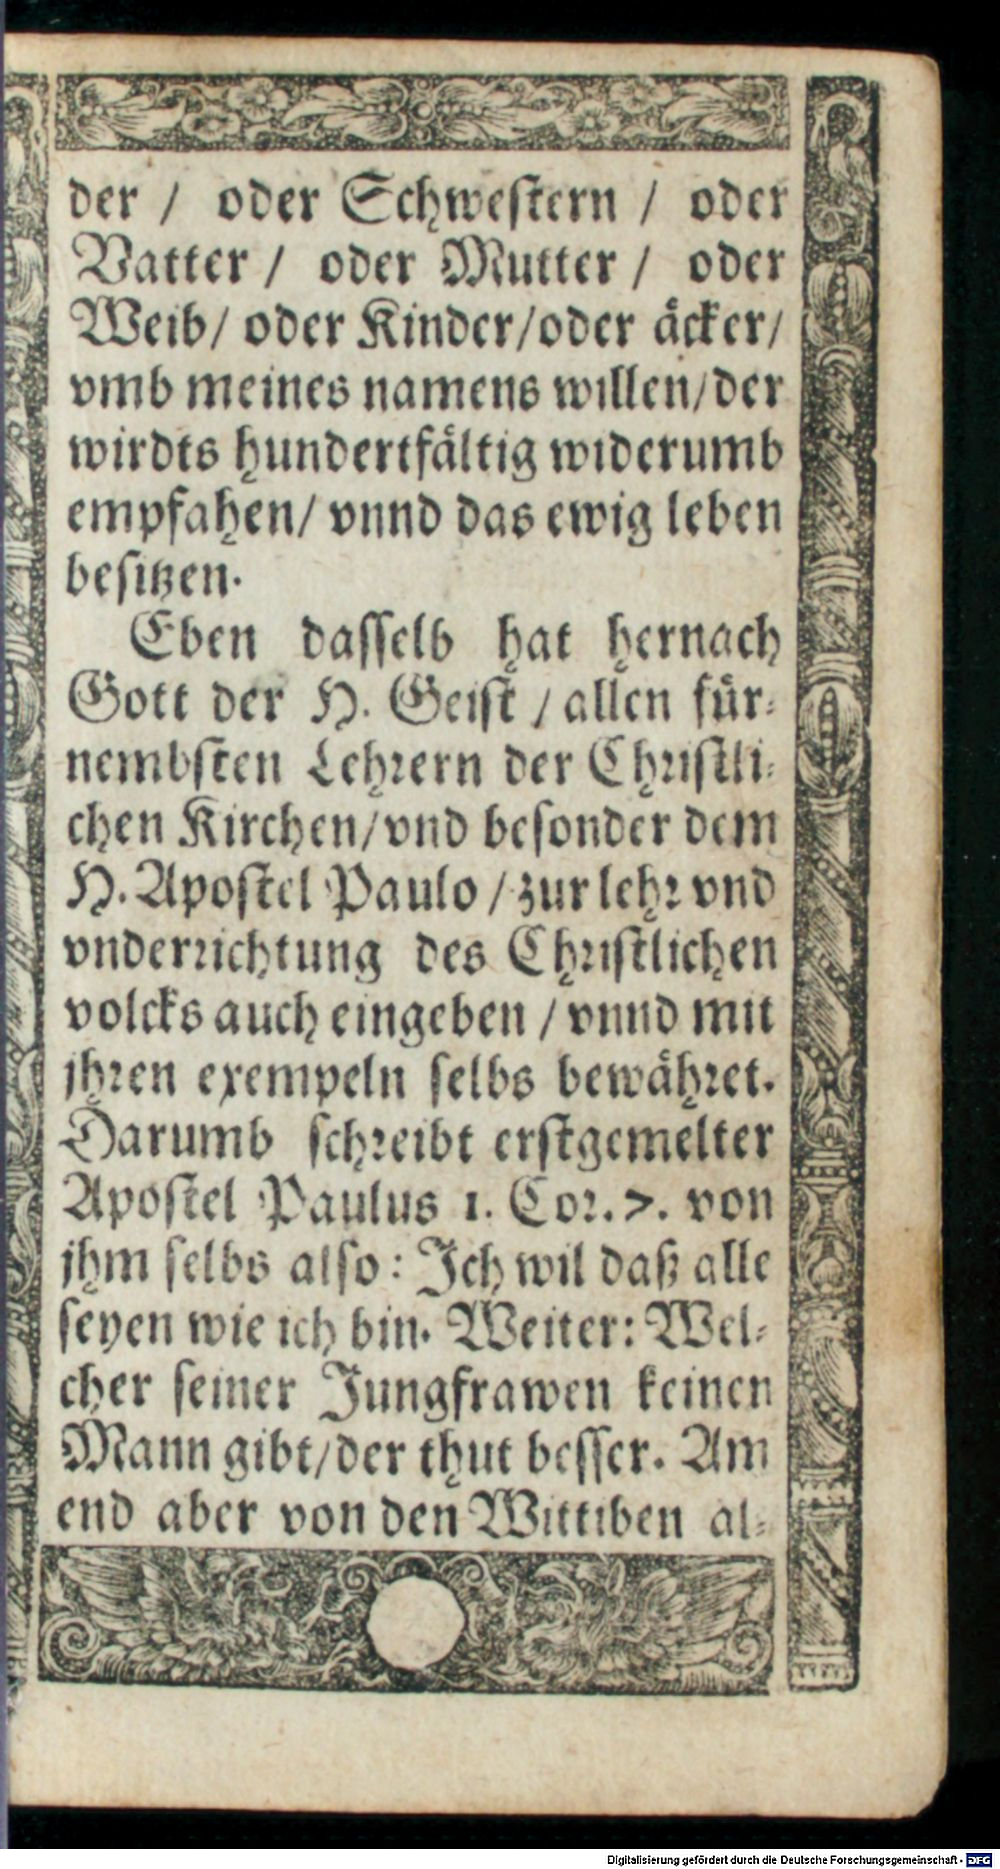 der / oder Schwestern / oder
Vatter / oder Mutter / oder
Weib / oder Kinder / oder äcker /
vmb meines namens willen / der
wirdts hundertfältig widerumb
empfahen / vnnd das ewig leben
besitzen.
Eben dasselb hat hernach
Gott der H. Geist / allen für-
nembsten Lehrern der Christli-
chen Kirchen / vnd besonder dem
H. Apostel Paulo / zur lehr vnd
vnderrichtung des Christlichen
volcks auch eingeben / vnnd mit
jhren exempeln selbs bewähret.
Darumb schreibt erstgemelter
Apostel Paulus 1. Cor. 7. von
jhm selbs also: Ich wil daß alle
seyen wie ich bin. Weiter: Wel-
cher seiner Jungfrawen keinen
Mann gibt / der thut besser. Am
end aber von den Wittiben al-
Digitalisierung gefördert durch die Deutsche Forschungsgemeinschaft - DFG